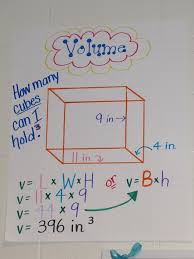 Volume
How many
cubes
can I
hold?
9 in→
11 in→
4 in
V= L x W x H or V= B x h
V= 11 x 4 x 9
V= 44 x 9
V= 396 in³